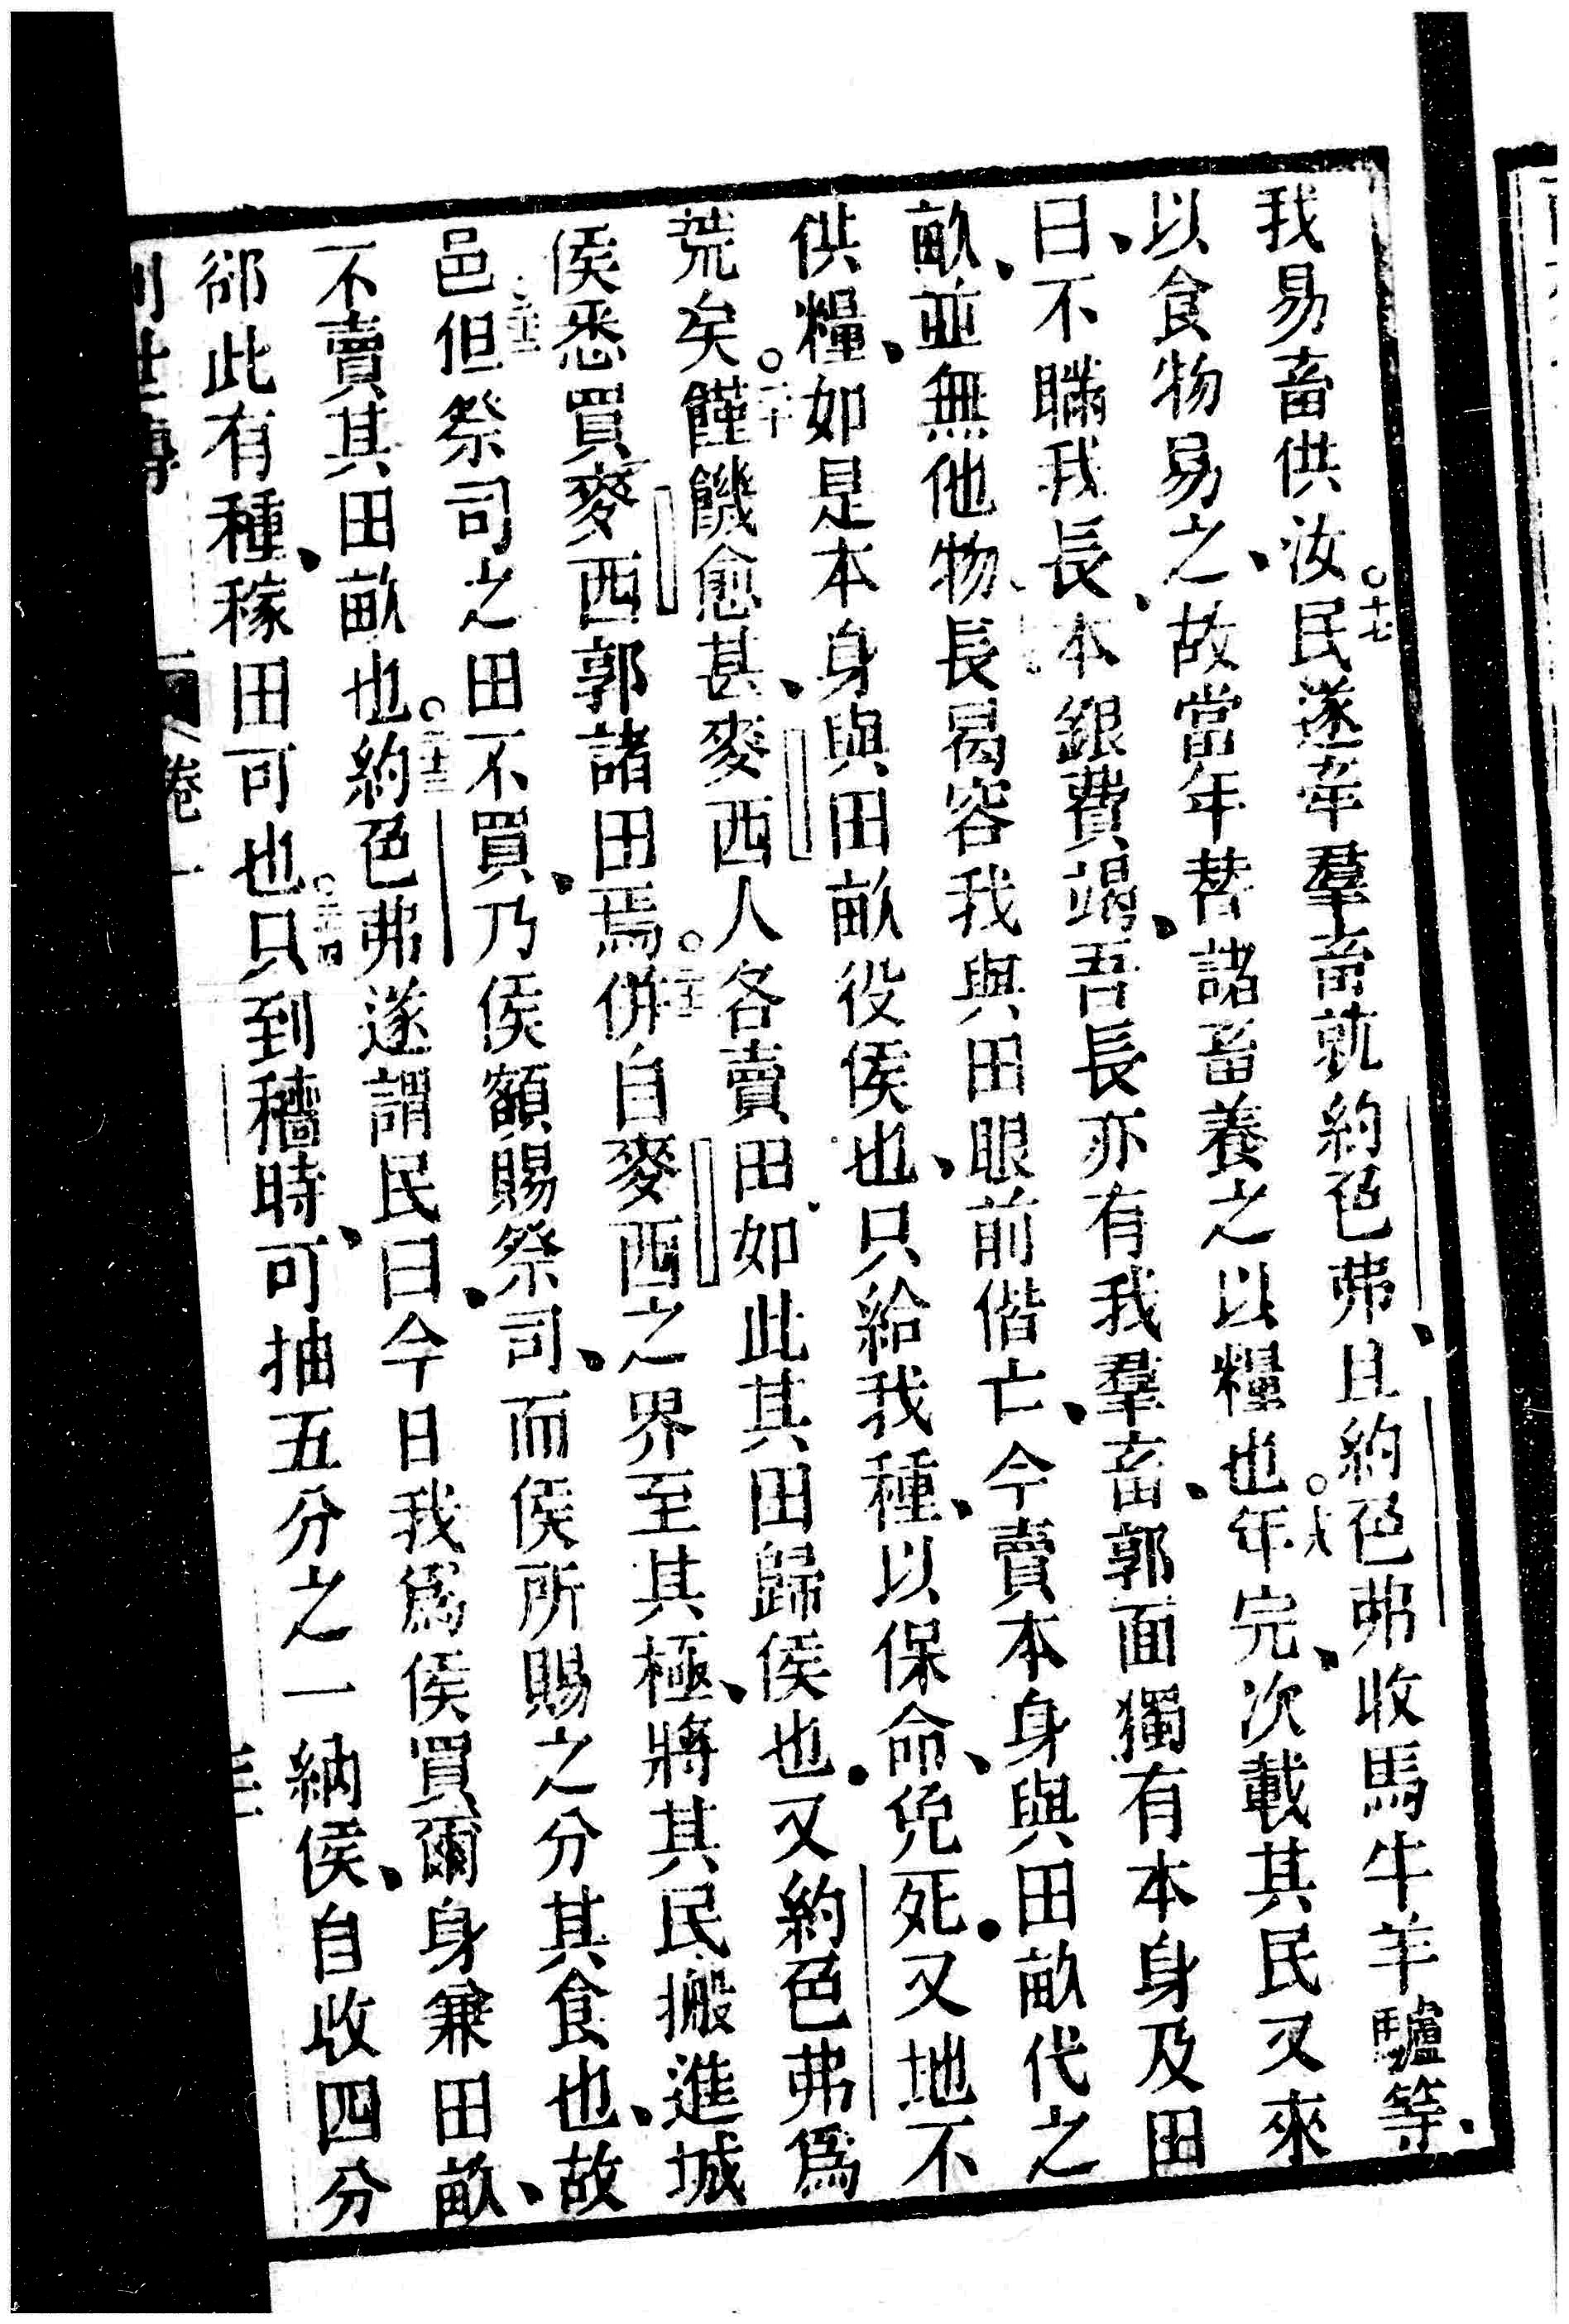 我易畜供汝民。十七遂牽羣畜就約色弗、且約色弗收馬牛羊驢等、
以食物易之、故當年替諸畜養之以糧也。十八年完、次載其民又來
曰、不瞞我長、本銀費竭、吾長亦有我羣畜、郭面獨有本身及田
畝、並無他物、長曷容我與田眼前偕亡、今賣本身與田畝代之
供糧、如是本身與田畝役侯也、只給我種、以保命、免死、又地不
荒矣。二十饉饑愈甚、麥西人各賣田、如此其田歸侯也、又約色弗爲
侯悉買麥西郭諸田焉。二十一併自麥西之界至其極、將其民搬進城
邑。二十二但祭司之田不買、乃侯額賜祭司、而侯所賜之分其食也、故
不賣其田畝也。二十三約色弗遂謂民曰、今日我爲侯買爾身兼田畝、
郤此有種、稼田可也。二十四只到穡時、可抽五分之一納侯、自收四分
卷一